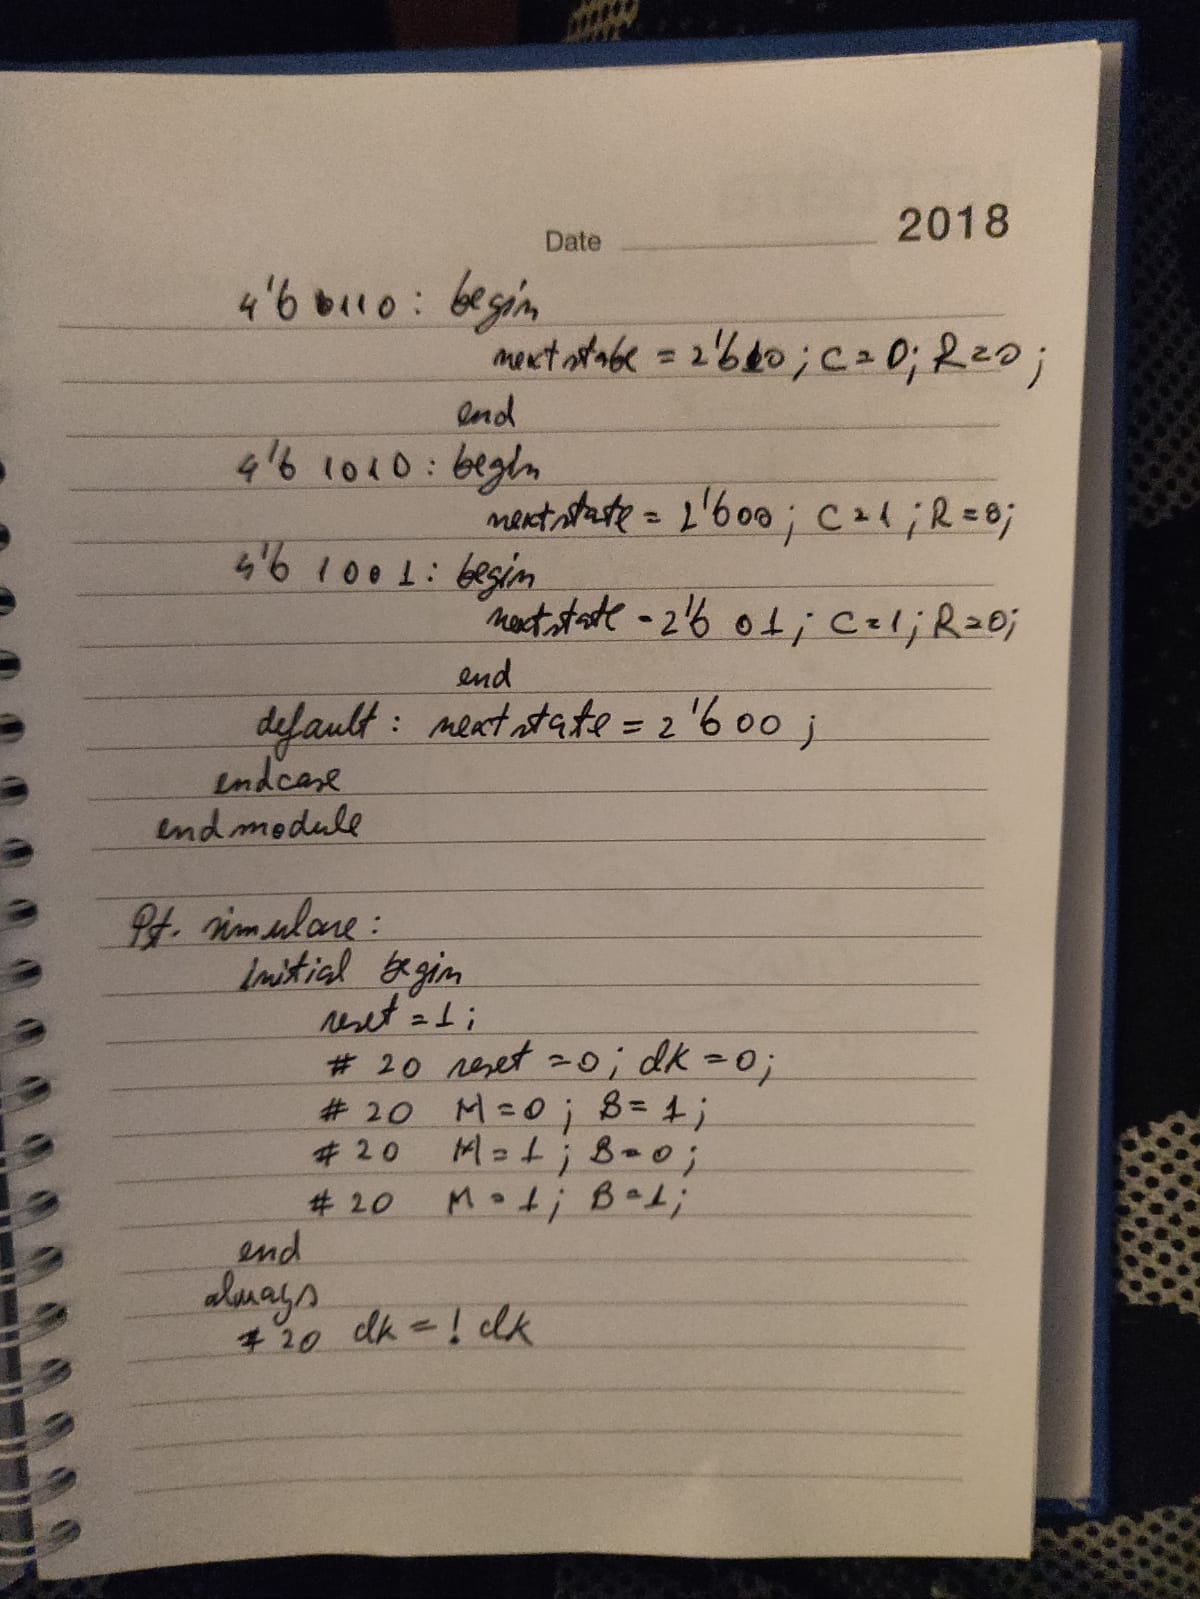 Date 2018
4'b 0110 : begin
nextstate = 2'b10 ; C = 0; R = 0 ;
end
4'b 1010 : begin
nextstate = 2'b00 ; C = 1 ; R = 0;
4'b 1001 : begin
nextstate = 2'b 01 ; C = 1 ; R = 0;
end
default : nextstate = 2'b00 ;
endcase
endmodule
Pt. simulare :
initial begin
reset = 1 ;
# 20 reset = 0 ; clk = 0 ;
# 20 M = 0 ; B = 1 ;
# 20 M = 1 ; B = 0 ;
# 20 M = 1 ; B = 1 ;
end
always
# 20 clk = ! clk